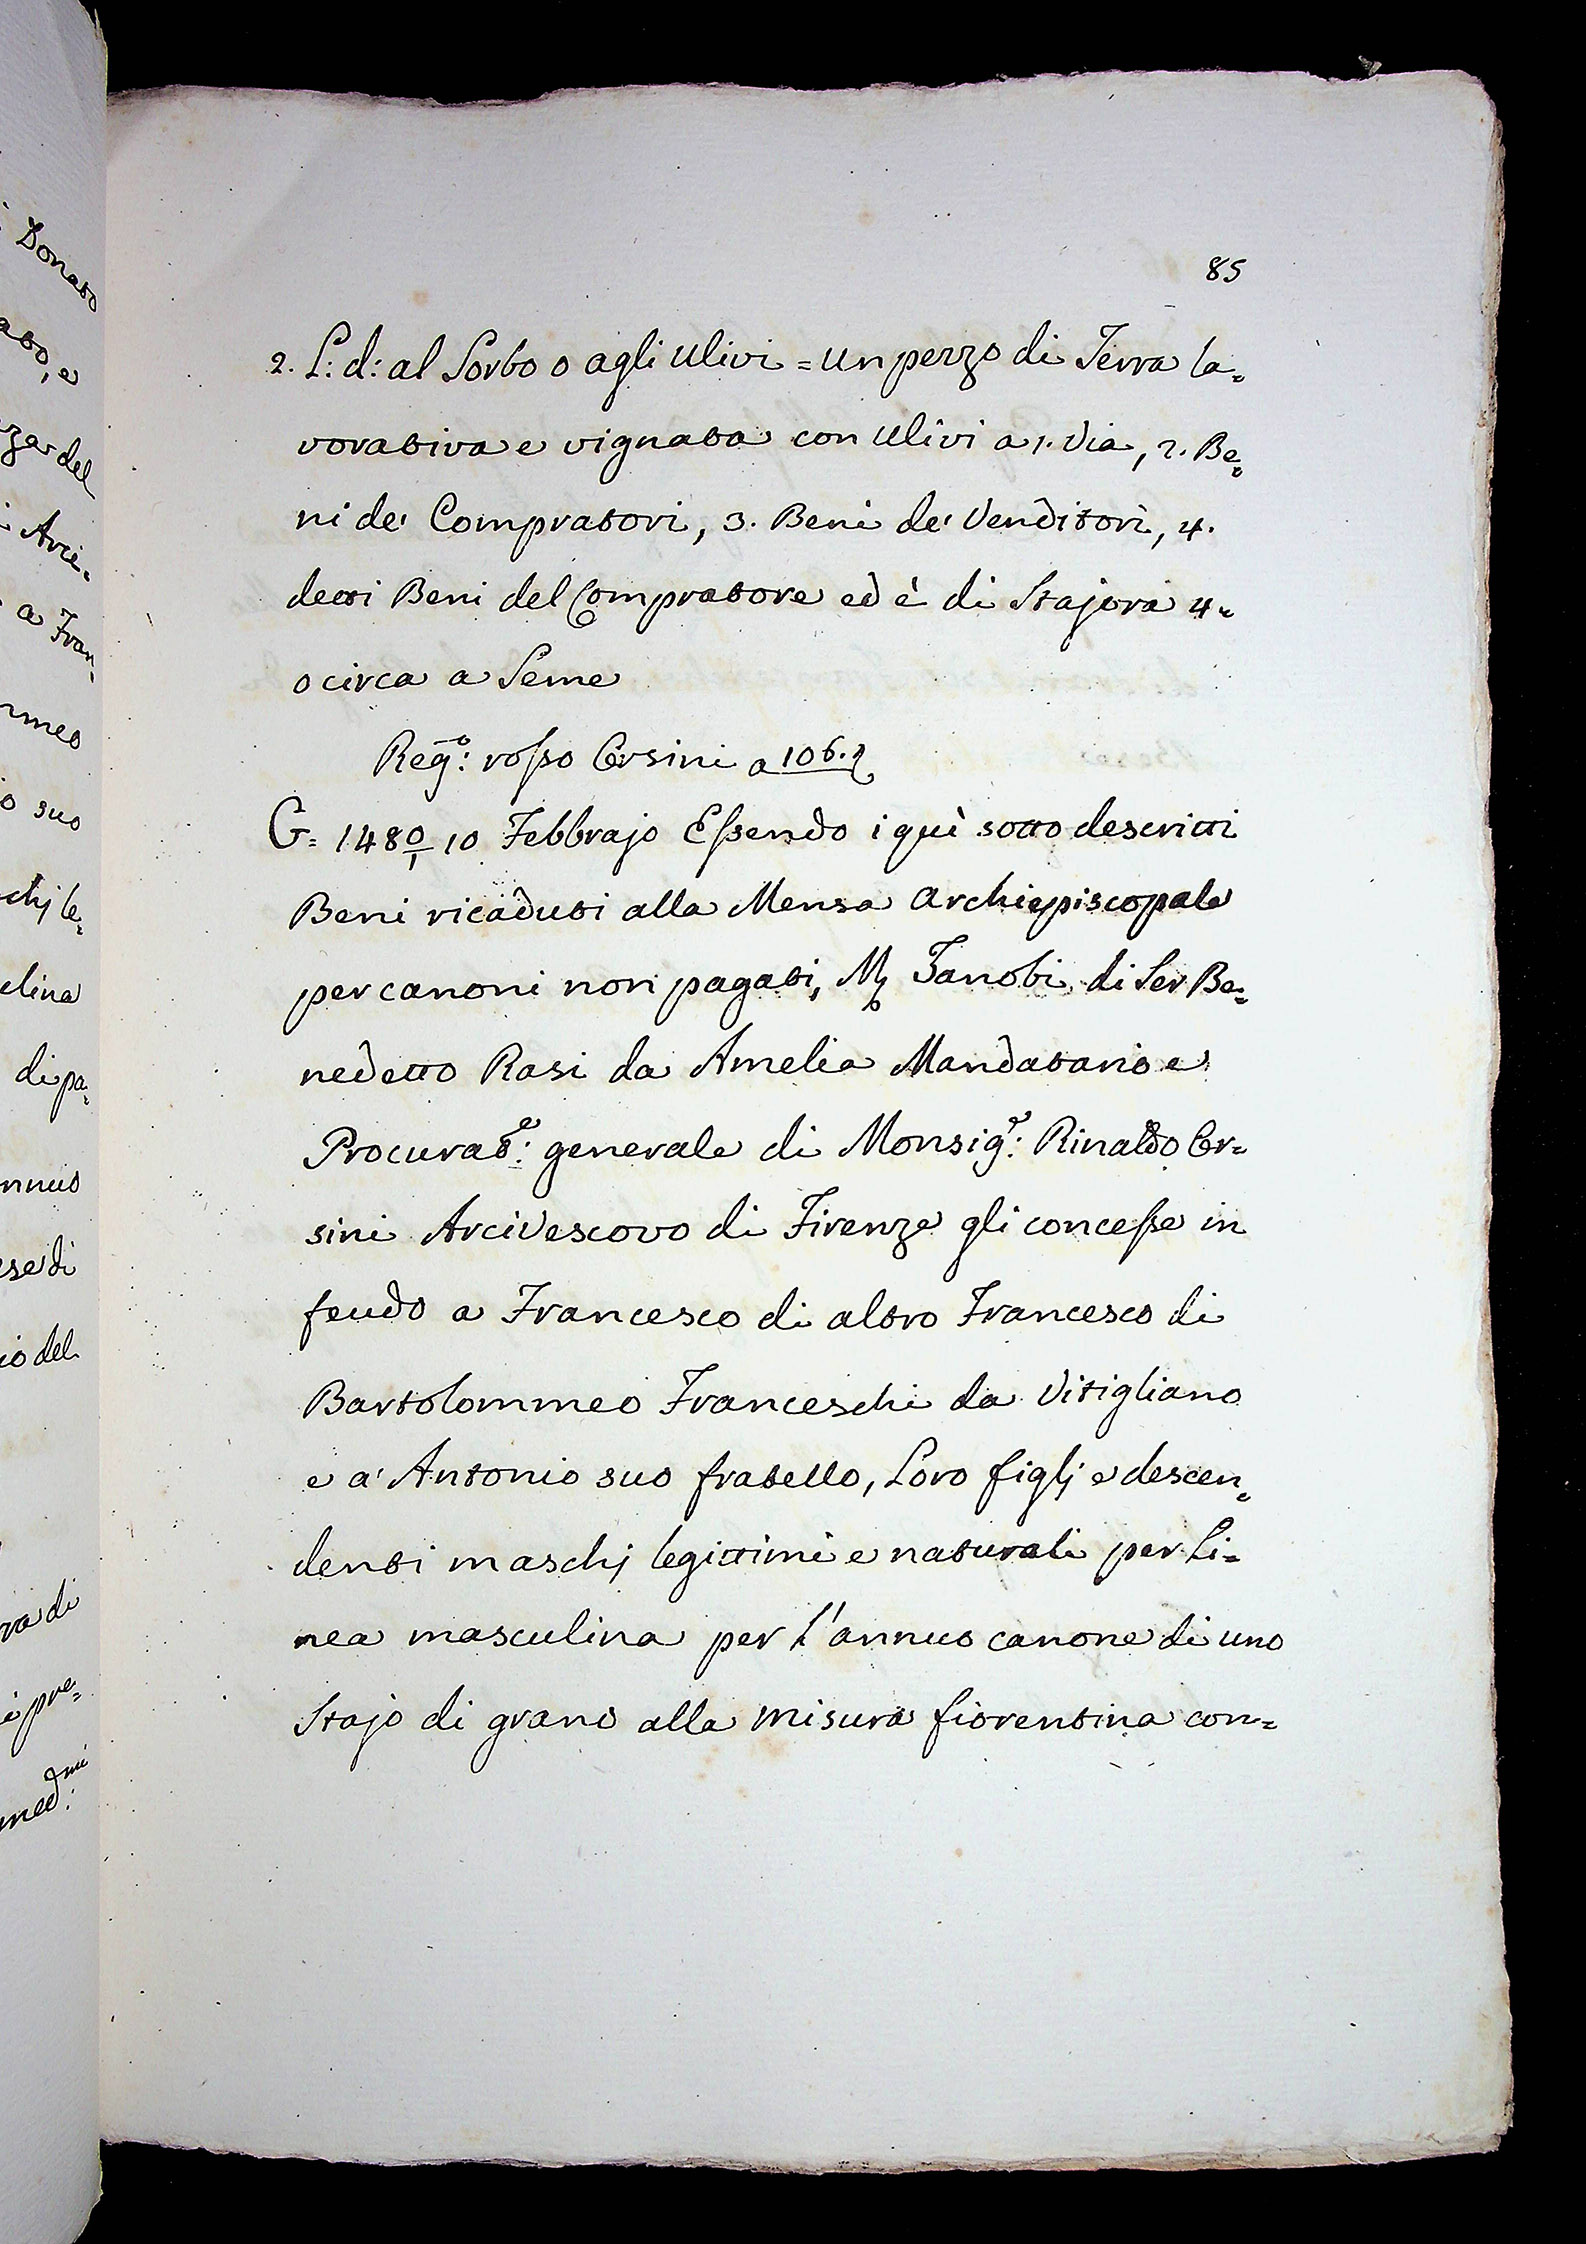 85
2. L: d: al Sorbo o agli Ulivi = un pezzo di Terra la=
vorativa e vignata con Ulivi a 1. Via, 2. Be=
ni de' Compratori, 3. Beni de' Venditori, 4.
detti Beni del Compratore ed è di Stajora 4=
o circa a Seme
Reg.º: rosso Orsini a 106.
G= 1480/1 10 Febbrajo Essendo i quì sotto descritti
Beni ricaduti alla Mensa Archiepiscopale
per canoni non pagati, M Zanobi di Ser Be=
nedetto Rasi da Amelia Mandatario e
Procurat.e: generale di Monsig.e: Rinaldo Or=
sini Arcivescovo di Firenze gli concesse in
feudo a Francesco di altro Francesco di
Bartolommeo Franceschi da Vitigliano
e a' Antonio suo fratello, Loro figlj e descen=
denti maschj legittimi e naturali per Li=
nea masculina per l'annuo canone di uno
Stajo di grano alla misura fiorentina con=
Donato
ato, e
za del
Arci=
a Fran=
meo
o suo
chj le=
elina
di pa=
nnuo
ese di
io del
ra di
i pre=
med.mi: